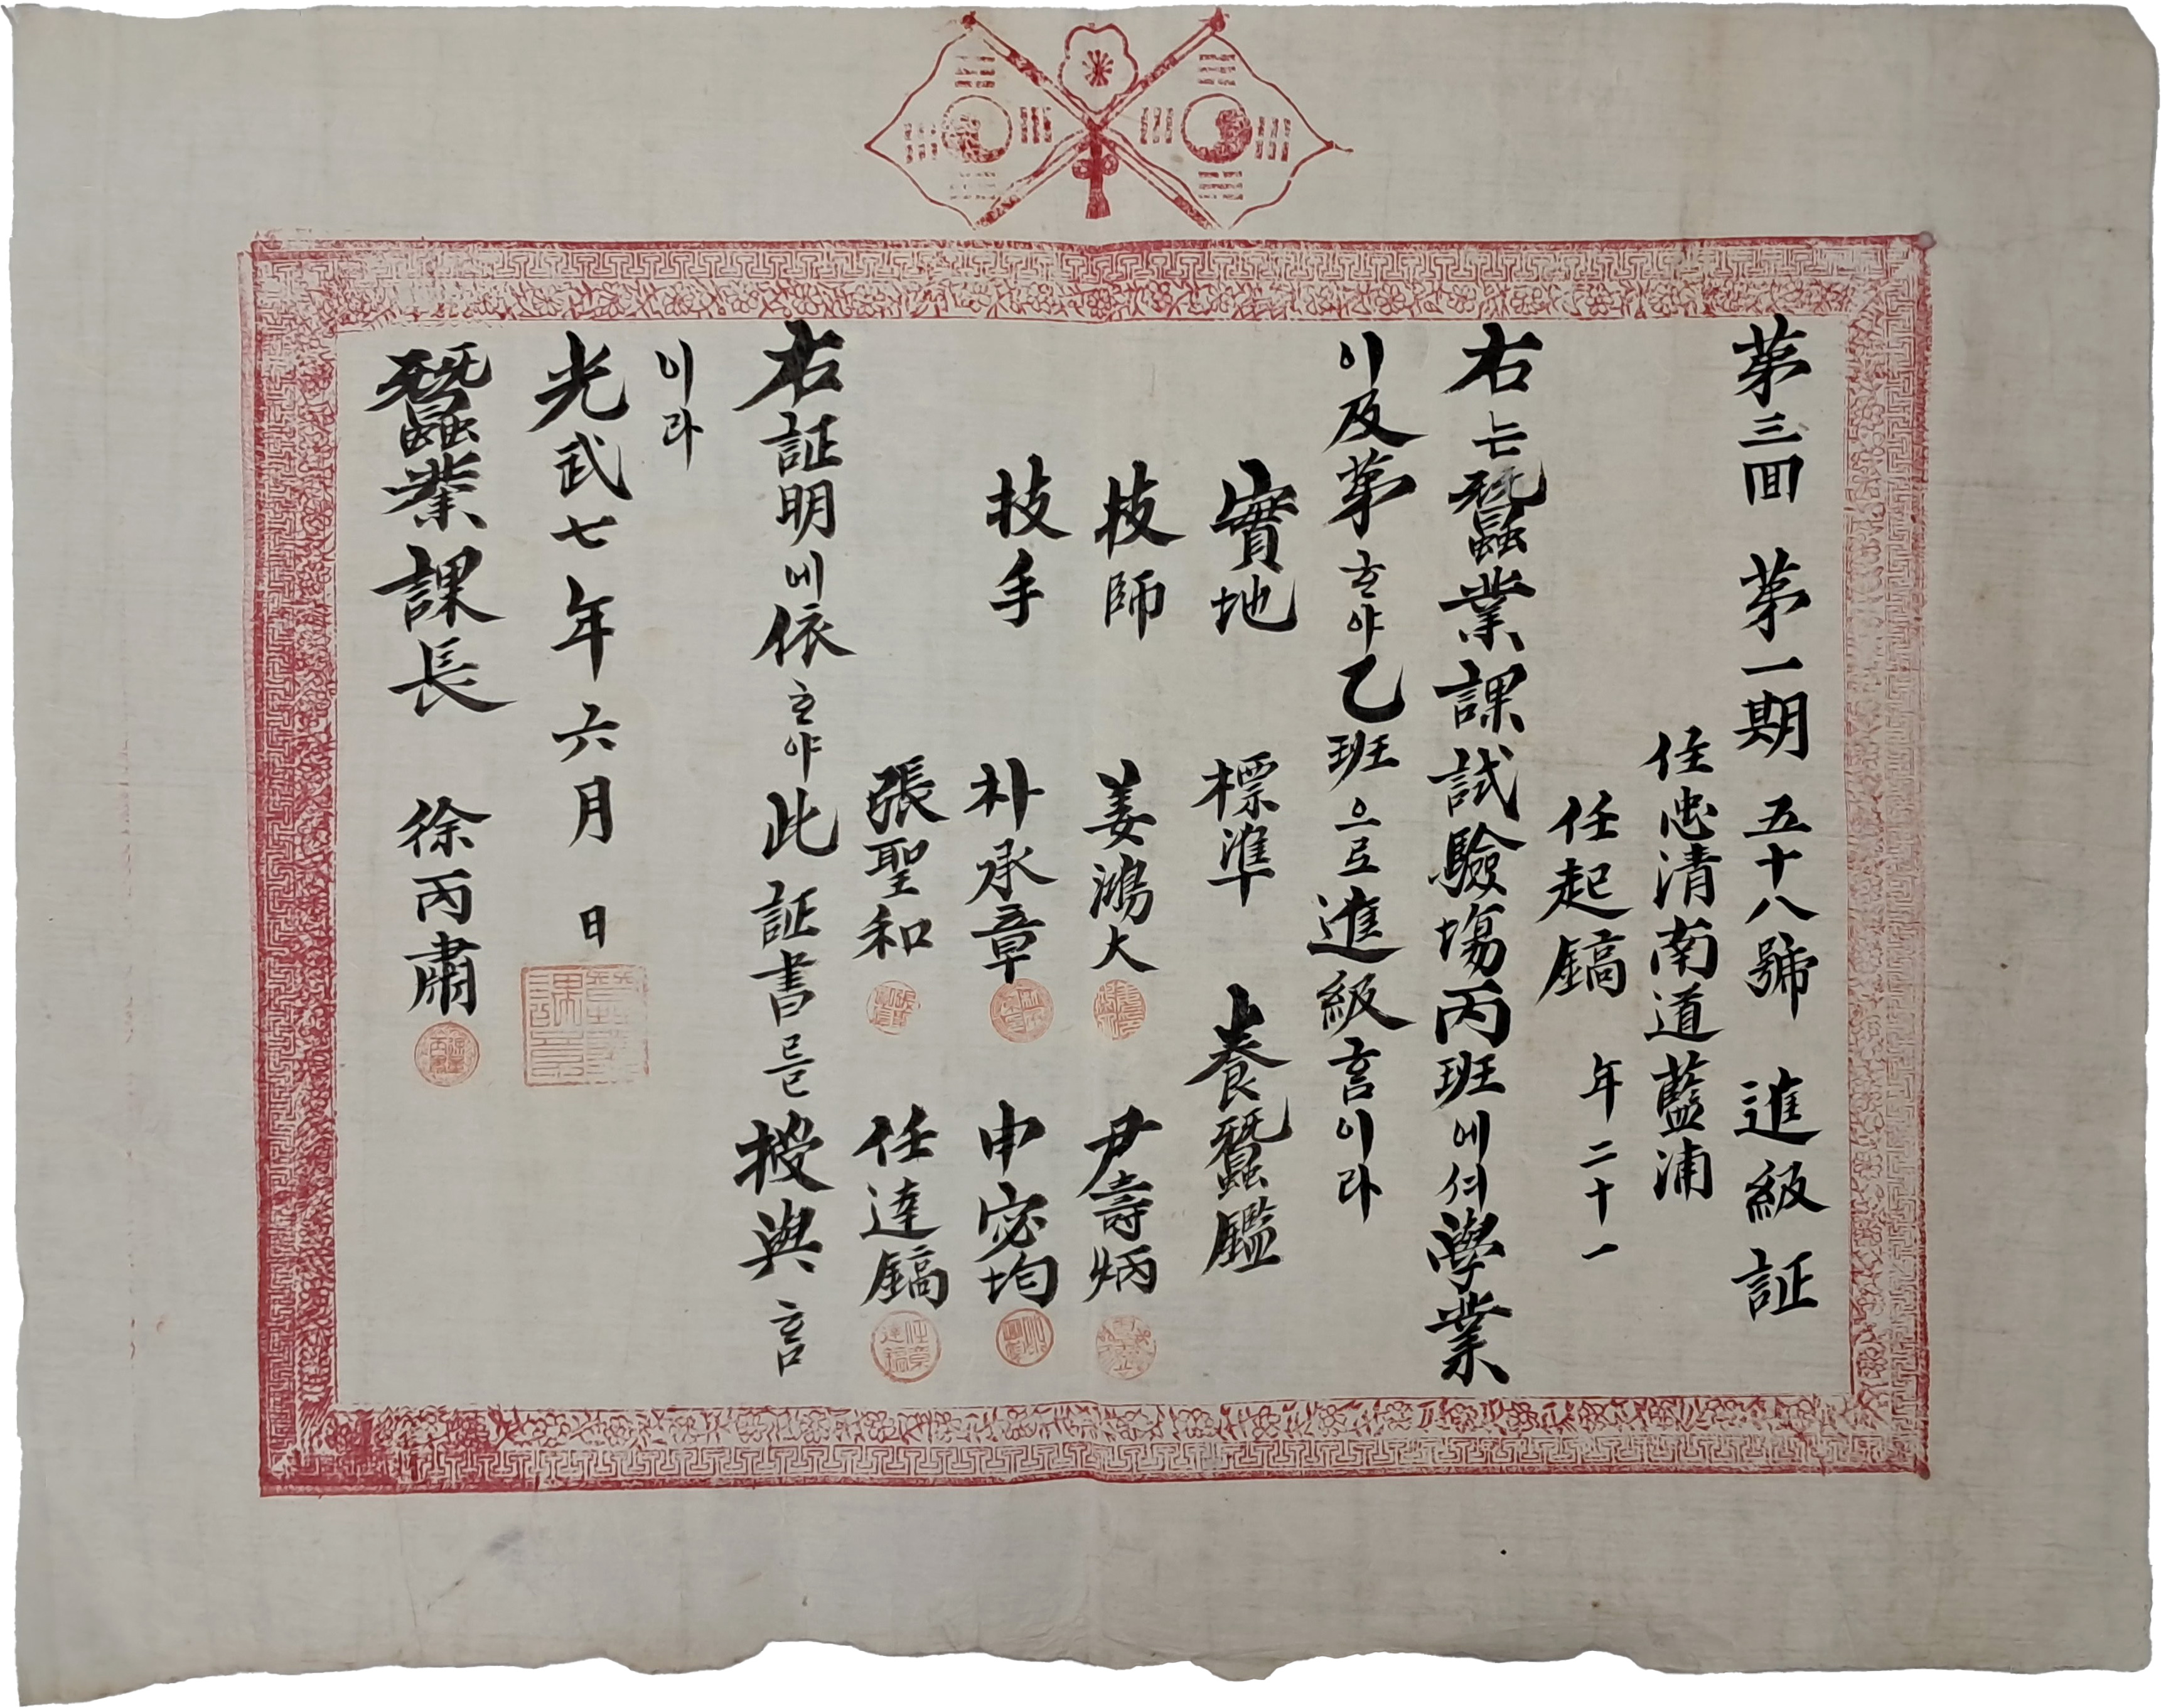 第三回 第一期 五十八號 進級証
住忠清南道藍浦
任起鎬 年二十一
右는蠶業課試驗塲丙班에셔學業
이及第ᄒᆞ야乙班으로進級홈이라
實地 標準 養蠶鑑
技師 姜鴻大 尹壽炳
技手 朴承章 申宓均
張聖和 任達鎬
右証明에依ᄒᆞ야此証書를授與홈
이라
光武七年六月 日
蠶業課長 徐丙肅